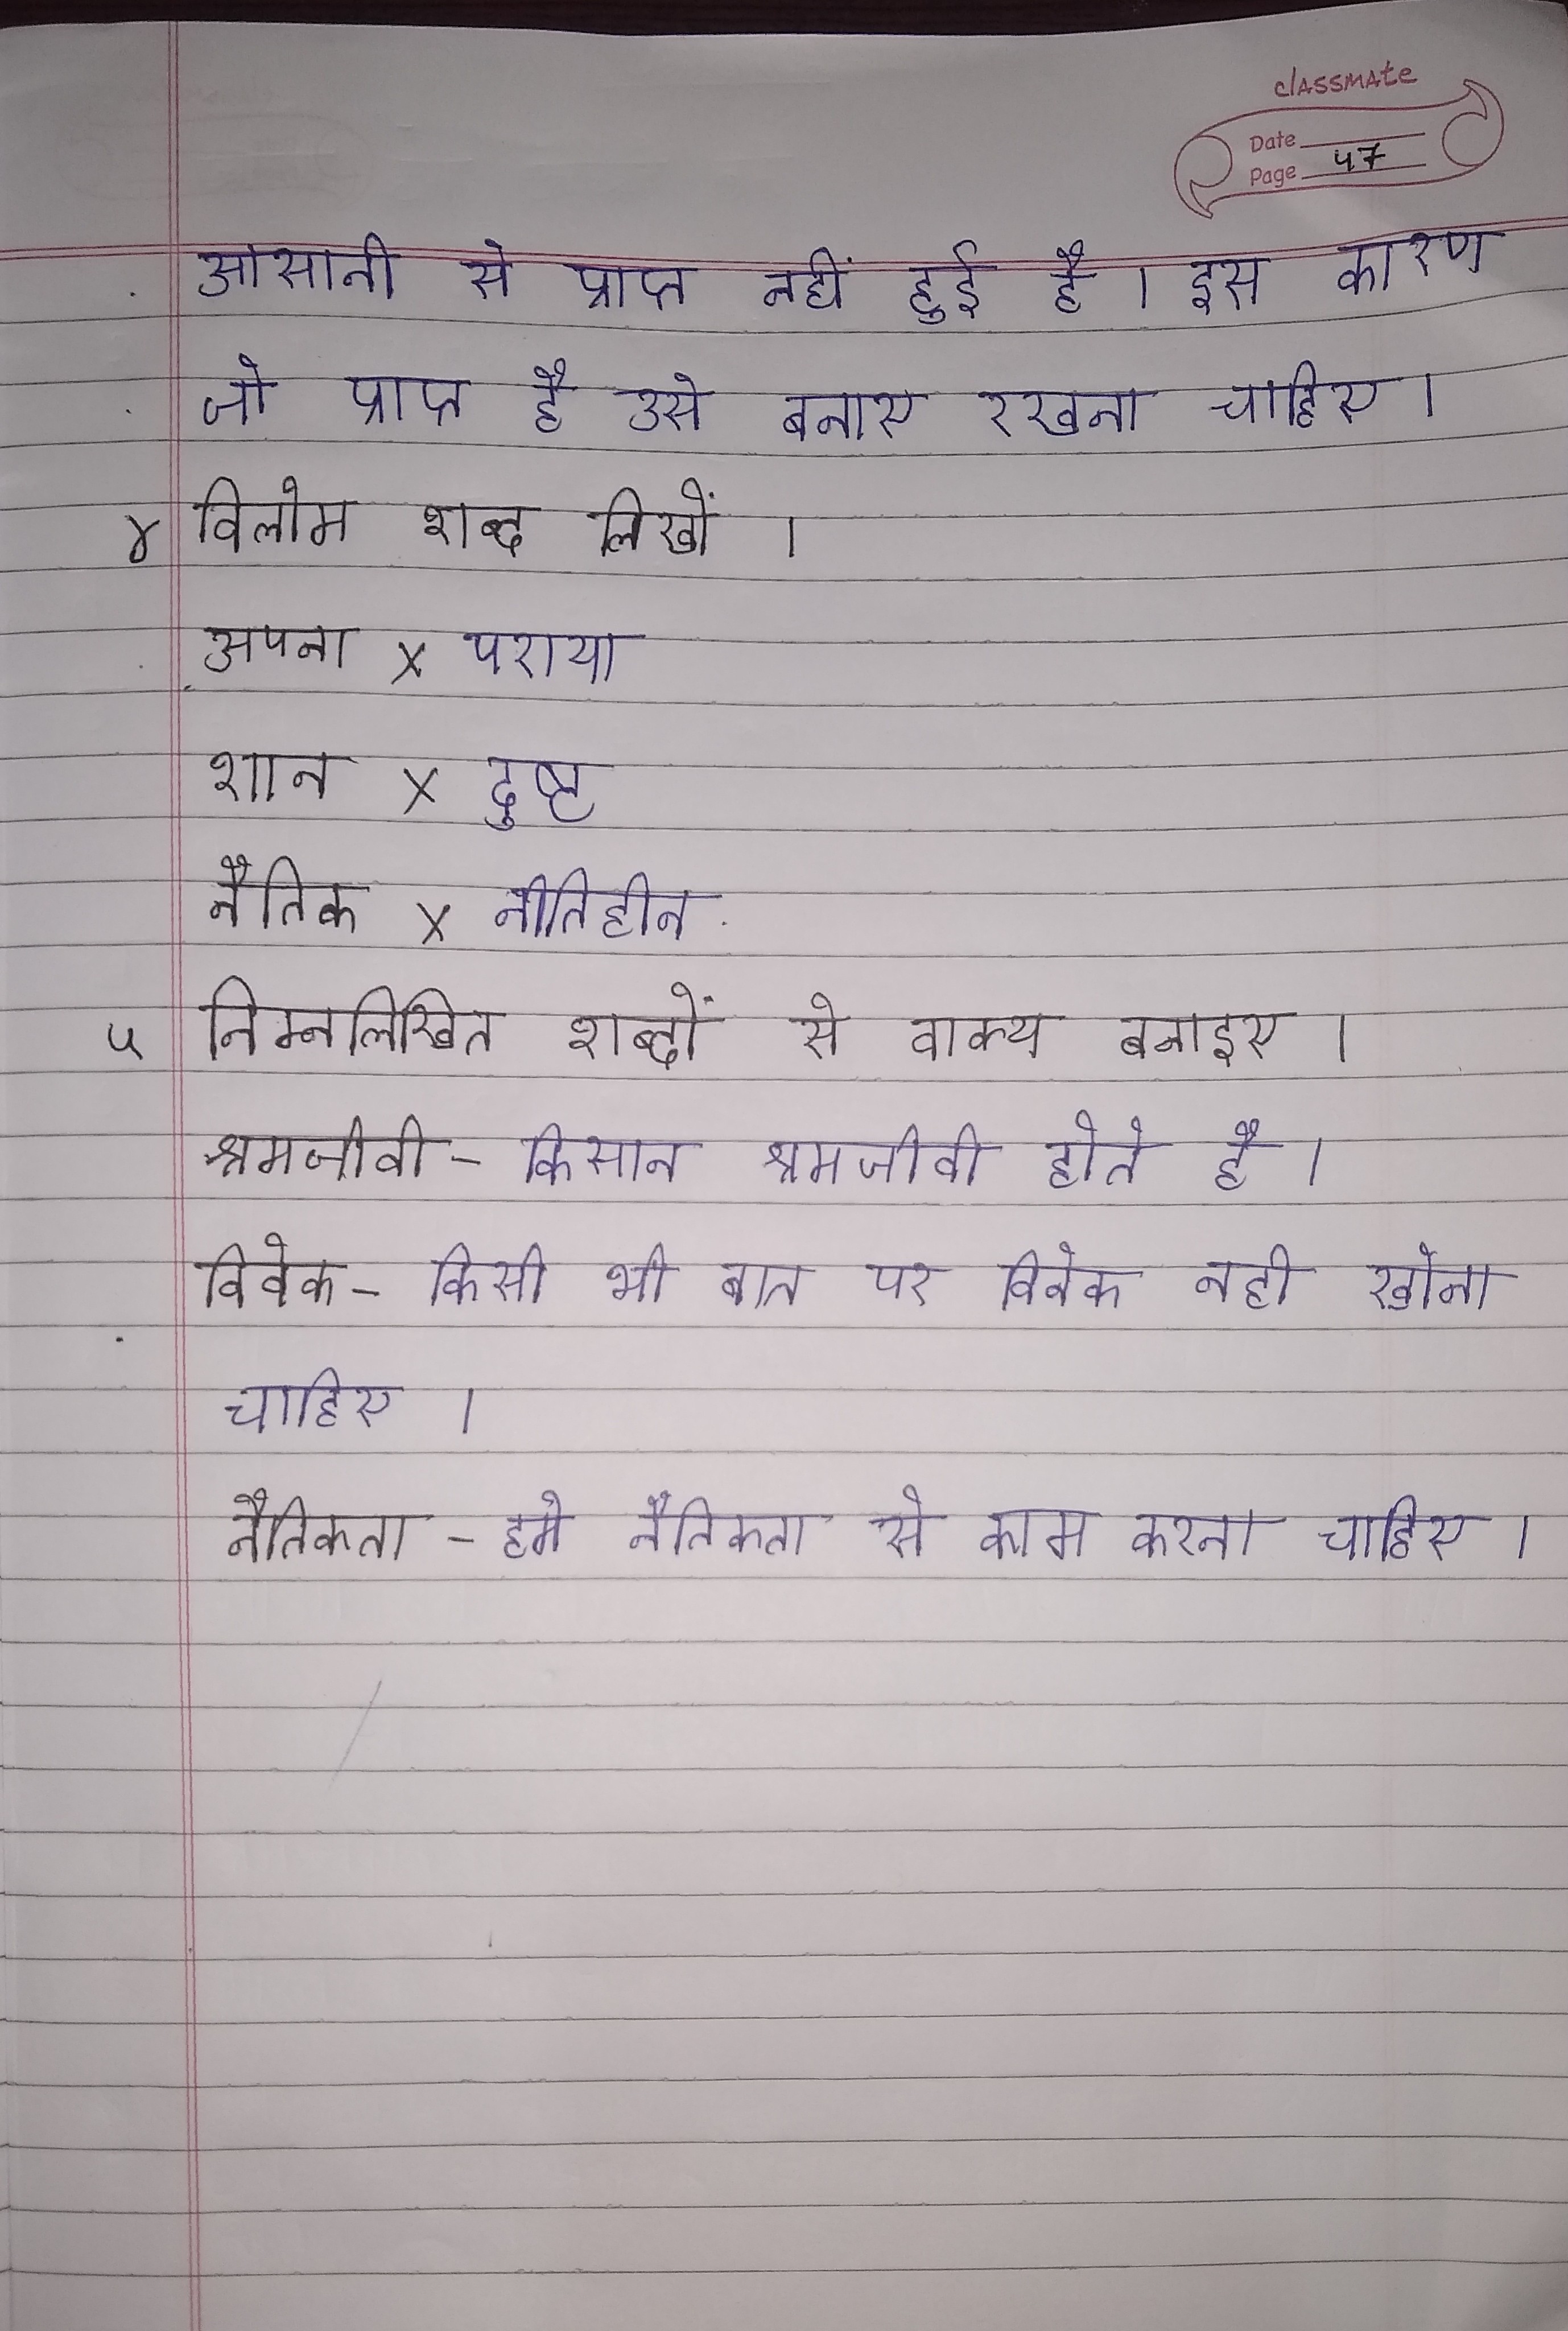 classmate
Date
Page 47
आसानी से प्राप्त नहीं हुई है । इस कारण
जो प्राप्त है उसे बनाए रखना चाहिए ।
४ विलोम शब्द लिखों ।
अपना x पराया
शान x दुष्ट
नैतिक x नीतिहीन
५ निम्नलिखित शब्दों से वाक्य बनाइए ।
श्रमजीवी - किसान श्रमजीवी होते है ।
विवेक - किसी भी बात पर विवेक नही खोना
चाहिए ।
नैतिकता - हमे नैतिकता से काम करना चाहिए ।